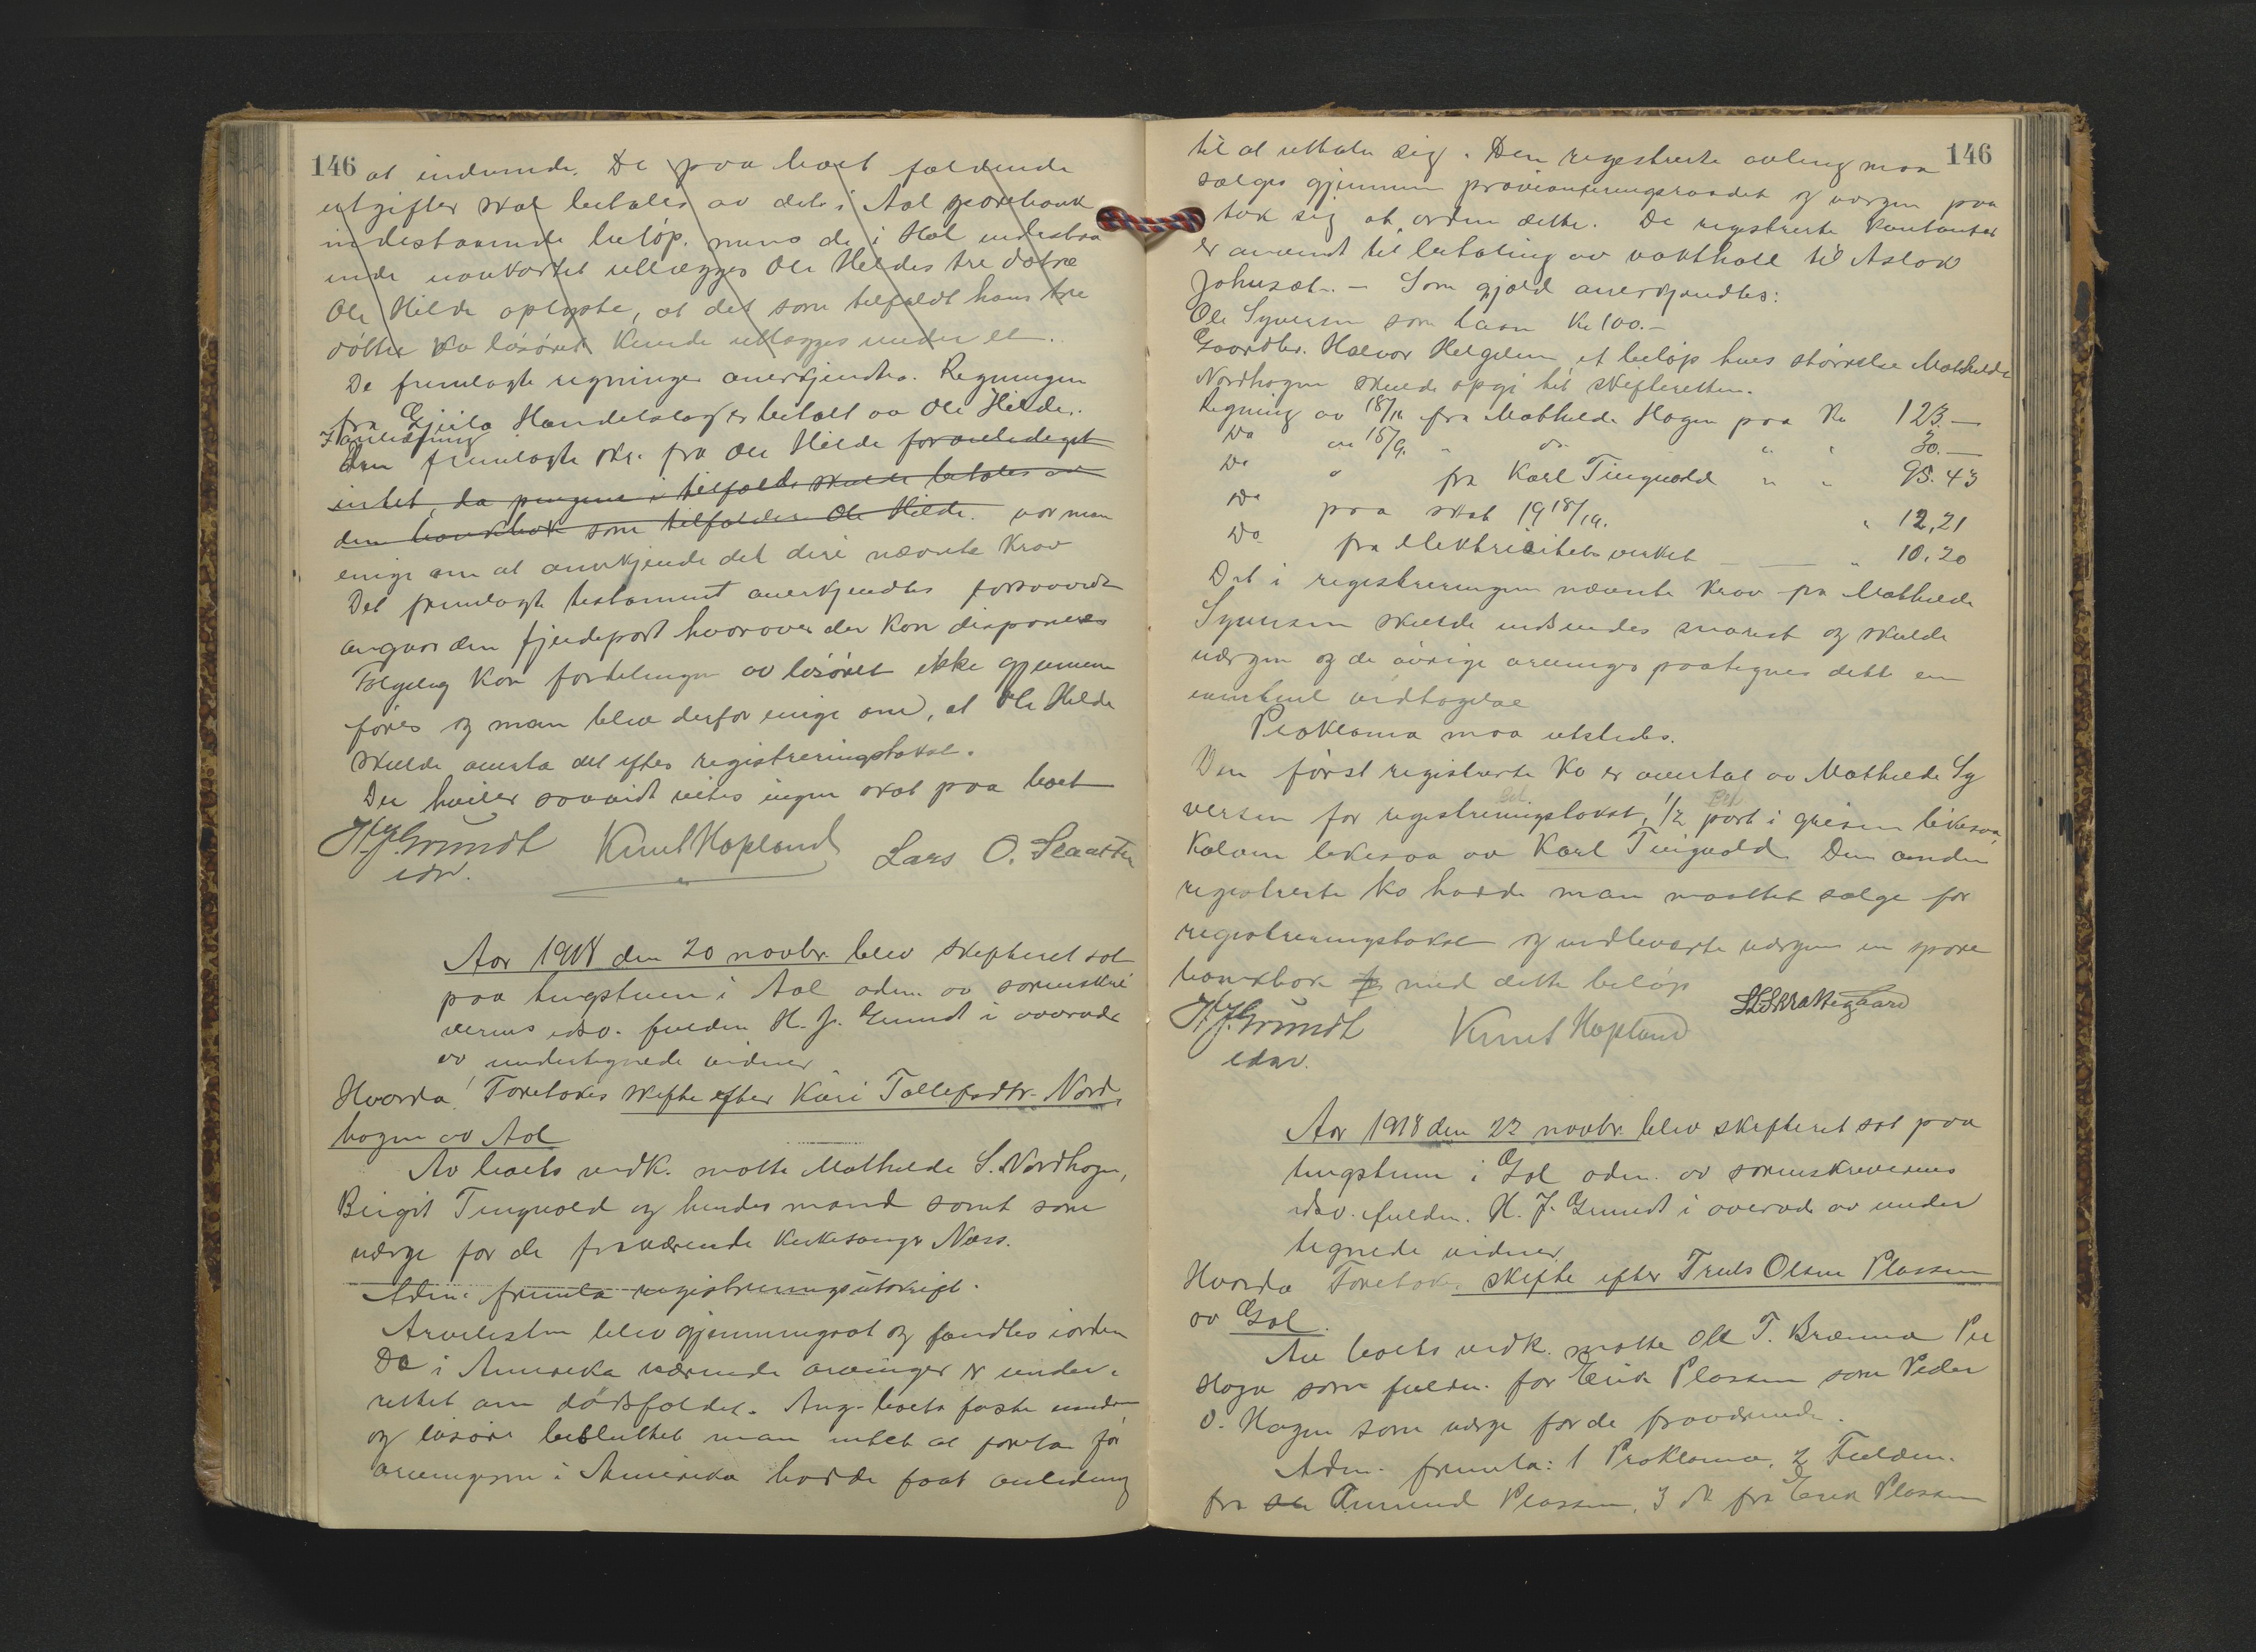 146
at indvende. De paa boet faldende
utgifter skal betales av det i Aal sparebank
indestaaende beløp, mens de i Hol indestaa
ende uavkortet utlægges Ole Hildes tre døtre
Ole Hilde oplyste, at det som tilfaldt hans tre
døttre av løsøret kunde utlægges under et.
De fremlagte regninger anerkjendtes. Regningen
fra Gjeilo Handelslag er betalt av Ole Hilde.
I anledning
den fremlagte skr. fra Ole Hilde foranlediget
intet, da pengene i tilfælde skulde betales av
den bankbok som tilfalder Ole Hilde. var man
enige om at anerkjende det deri nævnte krav
Det fremlagte testament anerkjendtes forsaavidt
angaar den fjerdepart hvorover der kan disponeres
Følgelig kan fordelingen av løsøret ikke gjennem
føres og man blev derfor enige om, at Ole Hilde
skulde overta det efter registreringstakst.
Der hviler saavidt vites ingen skat paa boet
H. J. Grundt Knut Hopland Lars O.
edsv.
Aar 1918 den 20 novbr. blev skifteret sat
paa tingstuen i Aal adm. av sorenskri
verens edsv. fuldm. H. J. Grundt i overvær
av undertegnede vidner
Hvorda! Foretokes skifte efter Kari Tollefsdtr. Nord,
hagen av Aal
Av boets vedk. møtte Mathilde S. Nordhagen,
Birgit Tingvold og hendes mand samt som
værge for de fraværende kirkesanger Næss.
Adm. fremla registreringsutskrift.
Arvelisten blev gjennemgaat og fandtes iorden
De i Amerika værende arvinger er under-
rettet om dødsfaldet. Ang. boets faste eiendom
og løsøre besluttet man intet at foreta før
arvingerne i Amerika hadde faat anledning
146
til at uttale sig. Den registrerte avling maa
sælges gjennem provianteringsraadet og værgen paa
tok sig at ordne dette. De registrerte kontanter
er anvendt til betaling av vakthold til Aslak
Johnsæt. — Som gjæld anerkjendtes:
Ole Syversen som laan Kr 100.—
Gaardbr. Halvor Helgesen et beløp hvis størrelse Mathilde
Nordhagen skulde opgi til skifteretten.
Regning av 18/11 fra Mathilde Hagen paa Kr 123.—
Do av 18/9. " do " " 30.—
Do " fra Karl Tingvold " " 95.43
Do paa skat 1918/19. " 12,21
Do fra Elektricitetsverket — — " 10.20
Det i registreringen nævnte krav fra Mathilde
Syversen skulde indsendes snarest og skulde
værgen og de øvrige arvinger paategnes dette en
eventuel vedtagelse
Proklama maa utstedes.
Den først registrerte ko er overtat av Mathilde Sy
versen for registreringstakst, 1/2 part i grisen likesaa,
Kalven likesaa av Karl Tingvold. Den anden
registrerte ko hadde man maattet sælge for
registreringstakst og indleverte værgen en spare
bankbok med dette beløp
H. J. Grundt Knut Hopland S. L. Skrattegaard
edsv.
Aar 1918 den 22 novbr. blev skifteret sat paa
tingstuen i Gol adm. av sorenskriverens
edsv. fuldm. H. J. Grundt i overvær av under
tegnede vidner
Hvorda Foretokes skifte efter Truls Olsen Plassen
av Gol.
Av boets vedk. møtte Ole T. Brænna Per
Hagen som fuldm. for Erik Plassen som Peder
O. Hagen som værge for de fraværende.
Adm. fremla: 1 Proklama, 2 Fuldm.
fra Amund Plassen, 3 do fra Erik Plassen